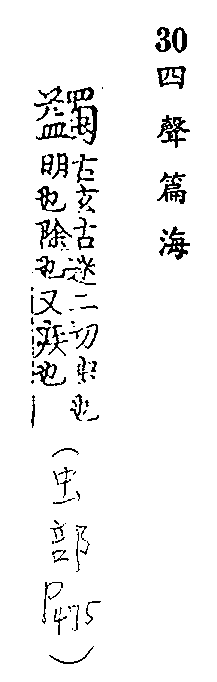 30 四聲篇海
蠲
古玄古迷二切虫也
明也除也又疾也
(虫部 P475)